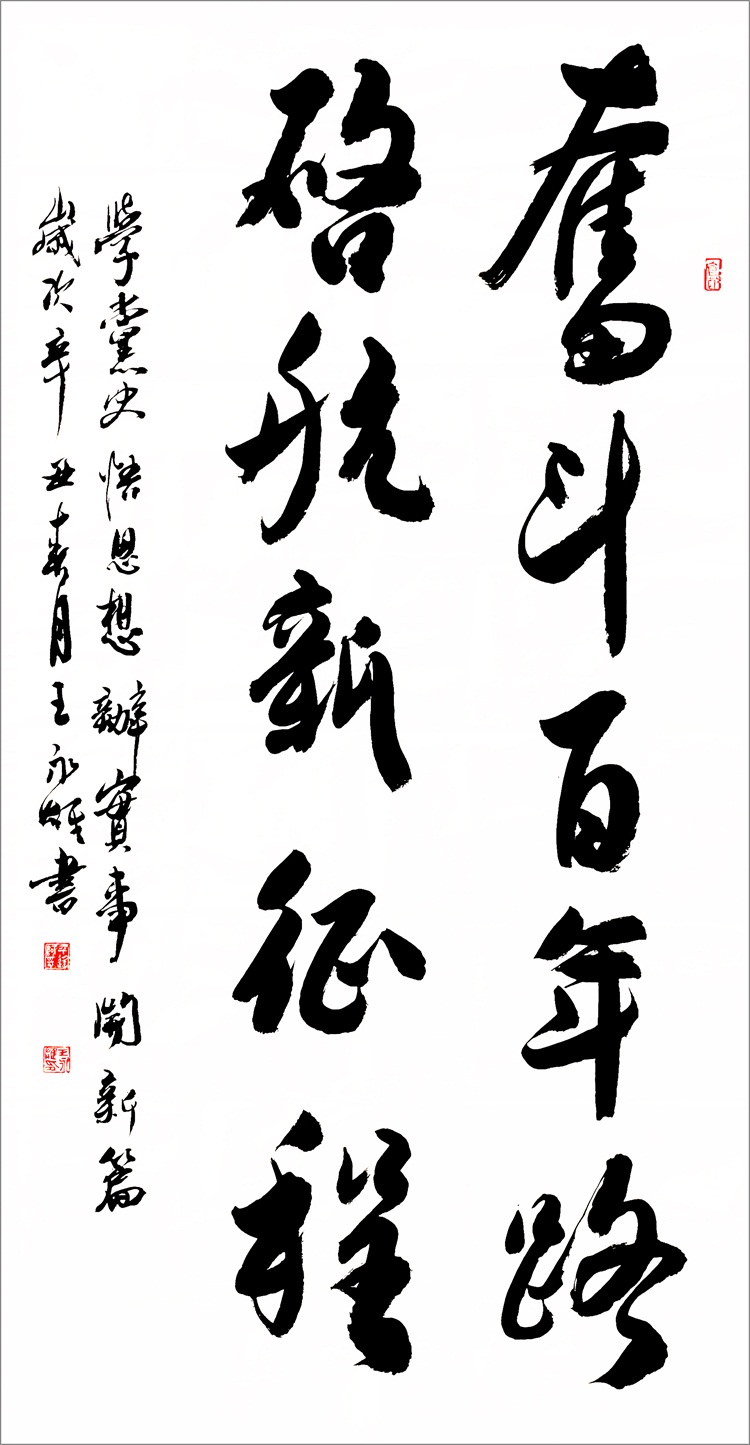 奮斗百年路
啓航新征程
學黨史 悟思想 辦實事 開新篇
歲次辛丑春月王永 書